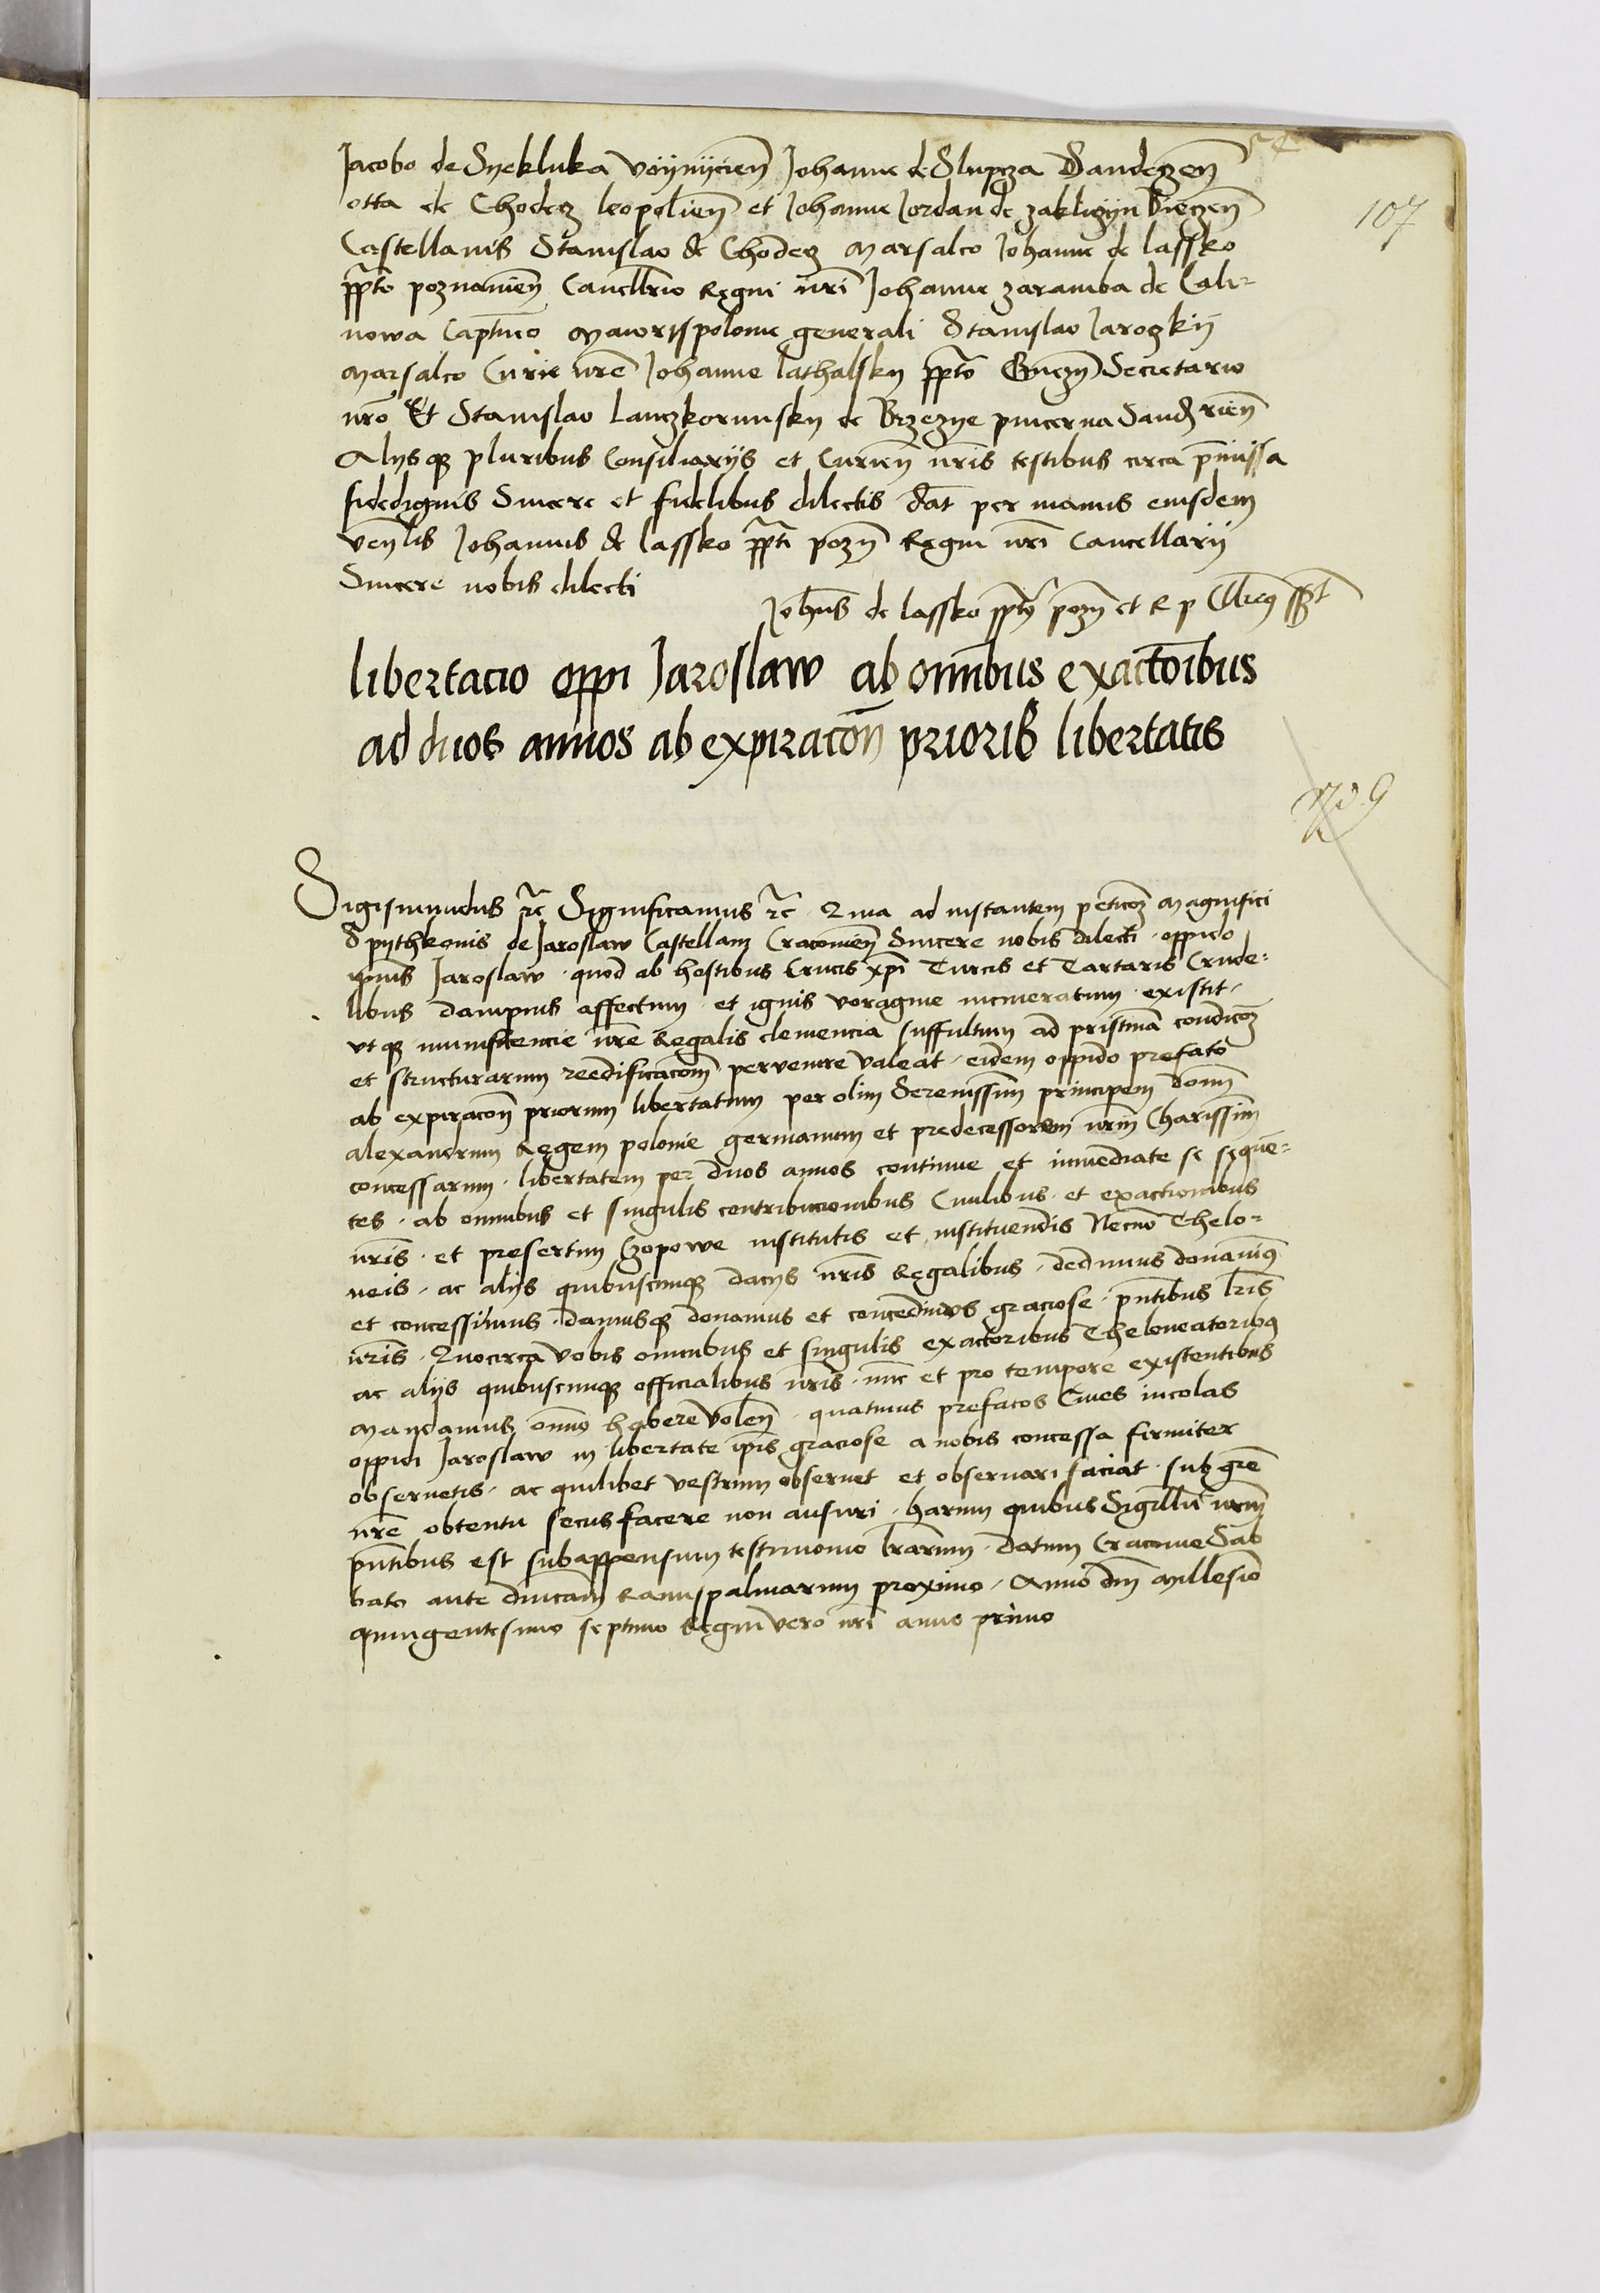 Jacobo de Syekluka Voÿnÿcien̄ Johanne de Slupcza Sandeczen̄
otta de Chodecz leopolien̄ et Johanne Jordan de zakliczÿn Bieczen̄
107
Castellanis Stanislao de Chodecz Marsalco Johanne de lassko
ppto poznanien̄ Cancellr̄io Regni nrī Johanne zaramba de Cali-
nowa Captn̄eo Maiorispolonie generali Stanislao Jaroczkij
Marsalco Curie nrē Johanne lathalsky ppto Gnezn̄ Secretario
nrō Et Stanislao lanczkorunsky de Brzezye pincerna Sandr̄ien̄
Alysqꝫ pluribus Consiliarijs et Curien̄ nrīs testibus circa pr̄missa
fidedignis Sincere et fidelibus dilectis Dat̄ per manus eiusdem
ven̄lis Johannis de lassko ppti pozn̄ Regni nrī Cancellarij
Sincere nobis dilecti
Joh̄nes de lassko pptꝰ pozn̄ et R p
libertacio oppi Jaroslaw ab om̄ibus exactōibus
ad duos annos ab expiracōn prioris libertatis
Sigismundus ꝛc̄ Significamus ꝛc̄ Quia ad instantem peticōꝫ Magnifici
Spythkonis de Jaroslaw Castellani Cracovien̄ Sincere nobis dilecti · oppido
ipius Jaroslaw · quod ab hostibus Crucis xp̄i Turcis et Tartaris Crude-
libus dampnis affectum · et ignis voragine incineratum · existit ·
vtqꝫ munificencie nrē Regalis clemencia suffultum ad pristinā condicōꝫ
et structurarum reedificacōm pervenire valeat · eidem oppido prefato
ab expiracōn priorum libertatum per olim Serenissim̄ principem domn̄
alexandrum Regem polonie germanum et predecessorem nrm̄ Charissim̄
concessarum · libertatem per duos annos continue et immediate se seque-
tes · ab omnibus et singulis contribucionibus Civilibus · et exactionibus
nrīs · et presertim Czopowe institutis et instituendis Necnō Thelo-
neis · ac alijs quibuscunqꝫ dacys nrīs Regalibus · dedimus donavimꝰ
et concessimus · damusqꝫ donamus et concedimus graciose · pn̄tibus lr̄is
nrīs · Quocirca vobis omnibus et singulis exactoribus Theloneatoribꝰ
ac alijs quibuscunqꝫ officialibus nrīs · nūc et pro tempore existentibus
Mandamus om̄o habere volen̄ · quatinus prefatos Cives incolas
oppidi Jaroslaw in libertate ip̄is graciose a nobis concessa firmiter
observetis · ac quilibet vestrum observet et observari faciat · sub grē
nrē obtentu secus facere non ausuri · harum quibus Sigillū nrm̄
pn̄tibus est subappensum testimonio lr̄arum · datum Cracovie Sab
bato ante dn̄icam Ramispalmarum proximo · Anno dn̄i Millesīo
quingentesimo septimo Regni vero nrī anno primo